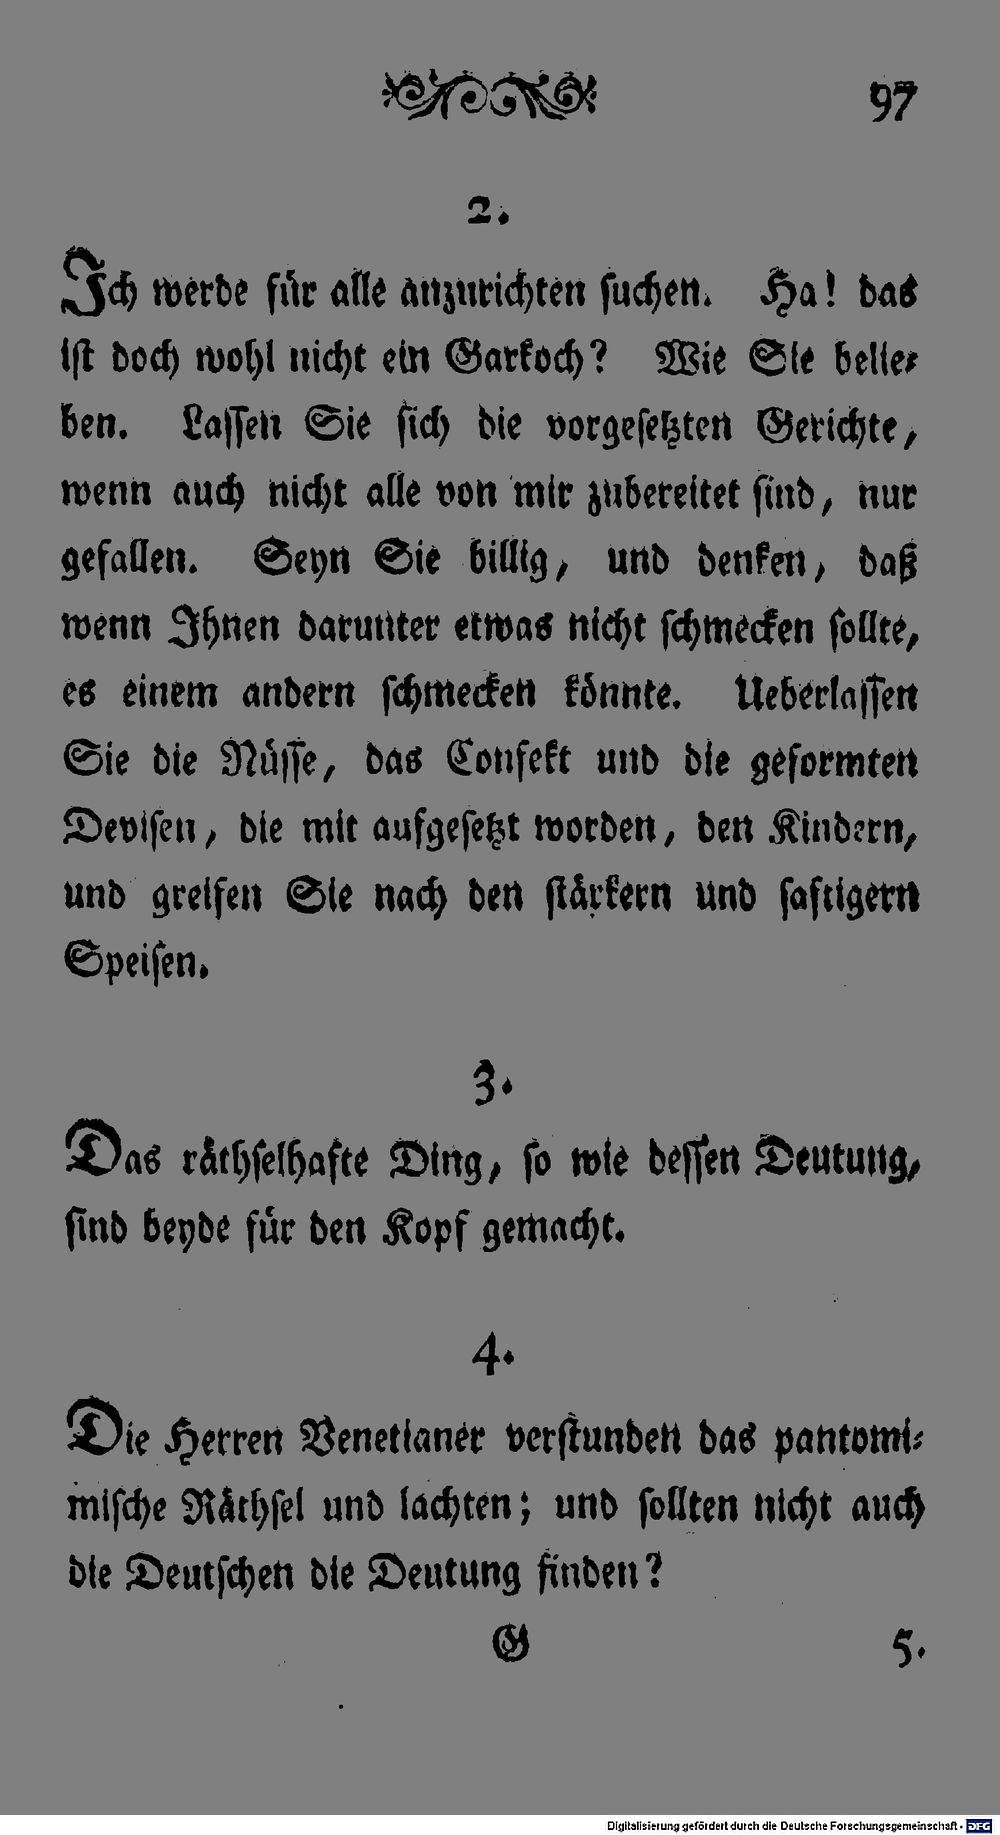 97
2.
Ich werde für alle anzurichten suchen. Ha! das
ist doch wohl nicht ein Garkoch? Wie Sie belie-
ben. Lassen Sie sich die vorgesetzten Gerichte,
wenn auch nicht alle von mir zubereitet sind, nur
gefallen. Seyn Sie billig, und denken, daß
wenn Ihnen darunter etwas nicht schmecken sollte,
es einem andern schmecken könnte. Ueberlassen
Sie die Nüsse, das Confekt und die geformten
Devisen, die mit aufgesetzt worden, den Kindern,
und greifen Sie nach den stärkern und saftigern
Speisen.
3.
Das räthselhafte Ding, so wie dessen Deutung,
sind beyde für den Kopf gemacht.
4.
Die Herren Venetianer verstunden das pantomi-
mische Räthsel und lachten; und sollten nicht auch
die Deutschen die Deutung finden?
G 5.
Digitalisierung gefördert durch die Deutsche Forschungsgemeinschaft - DFG